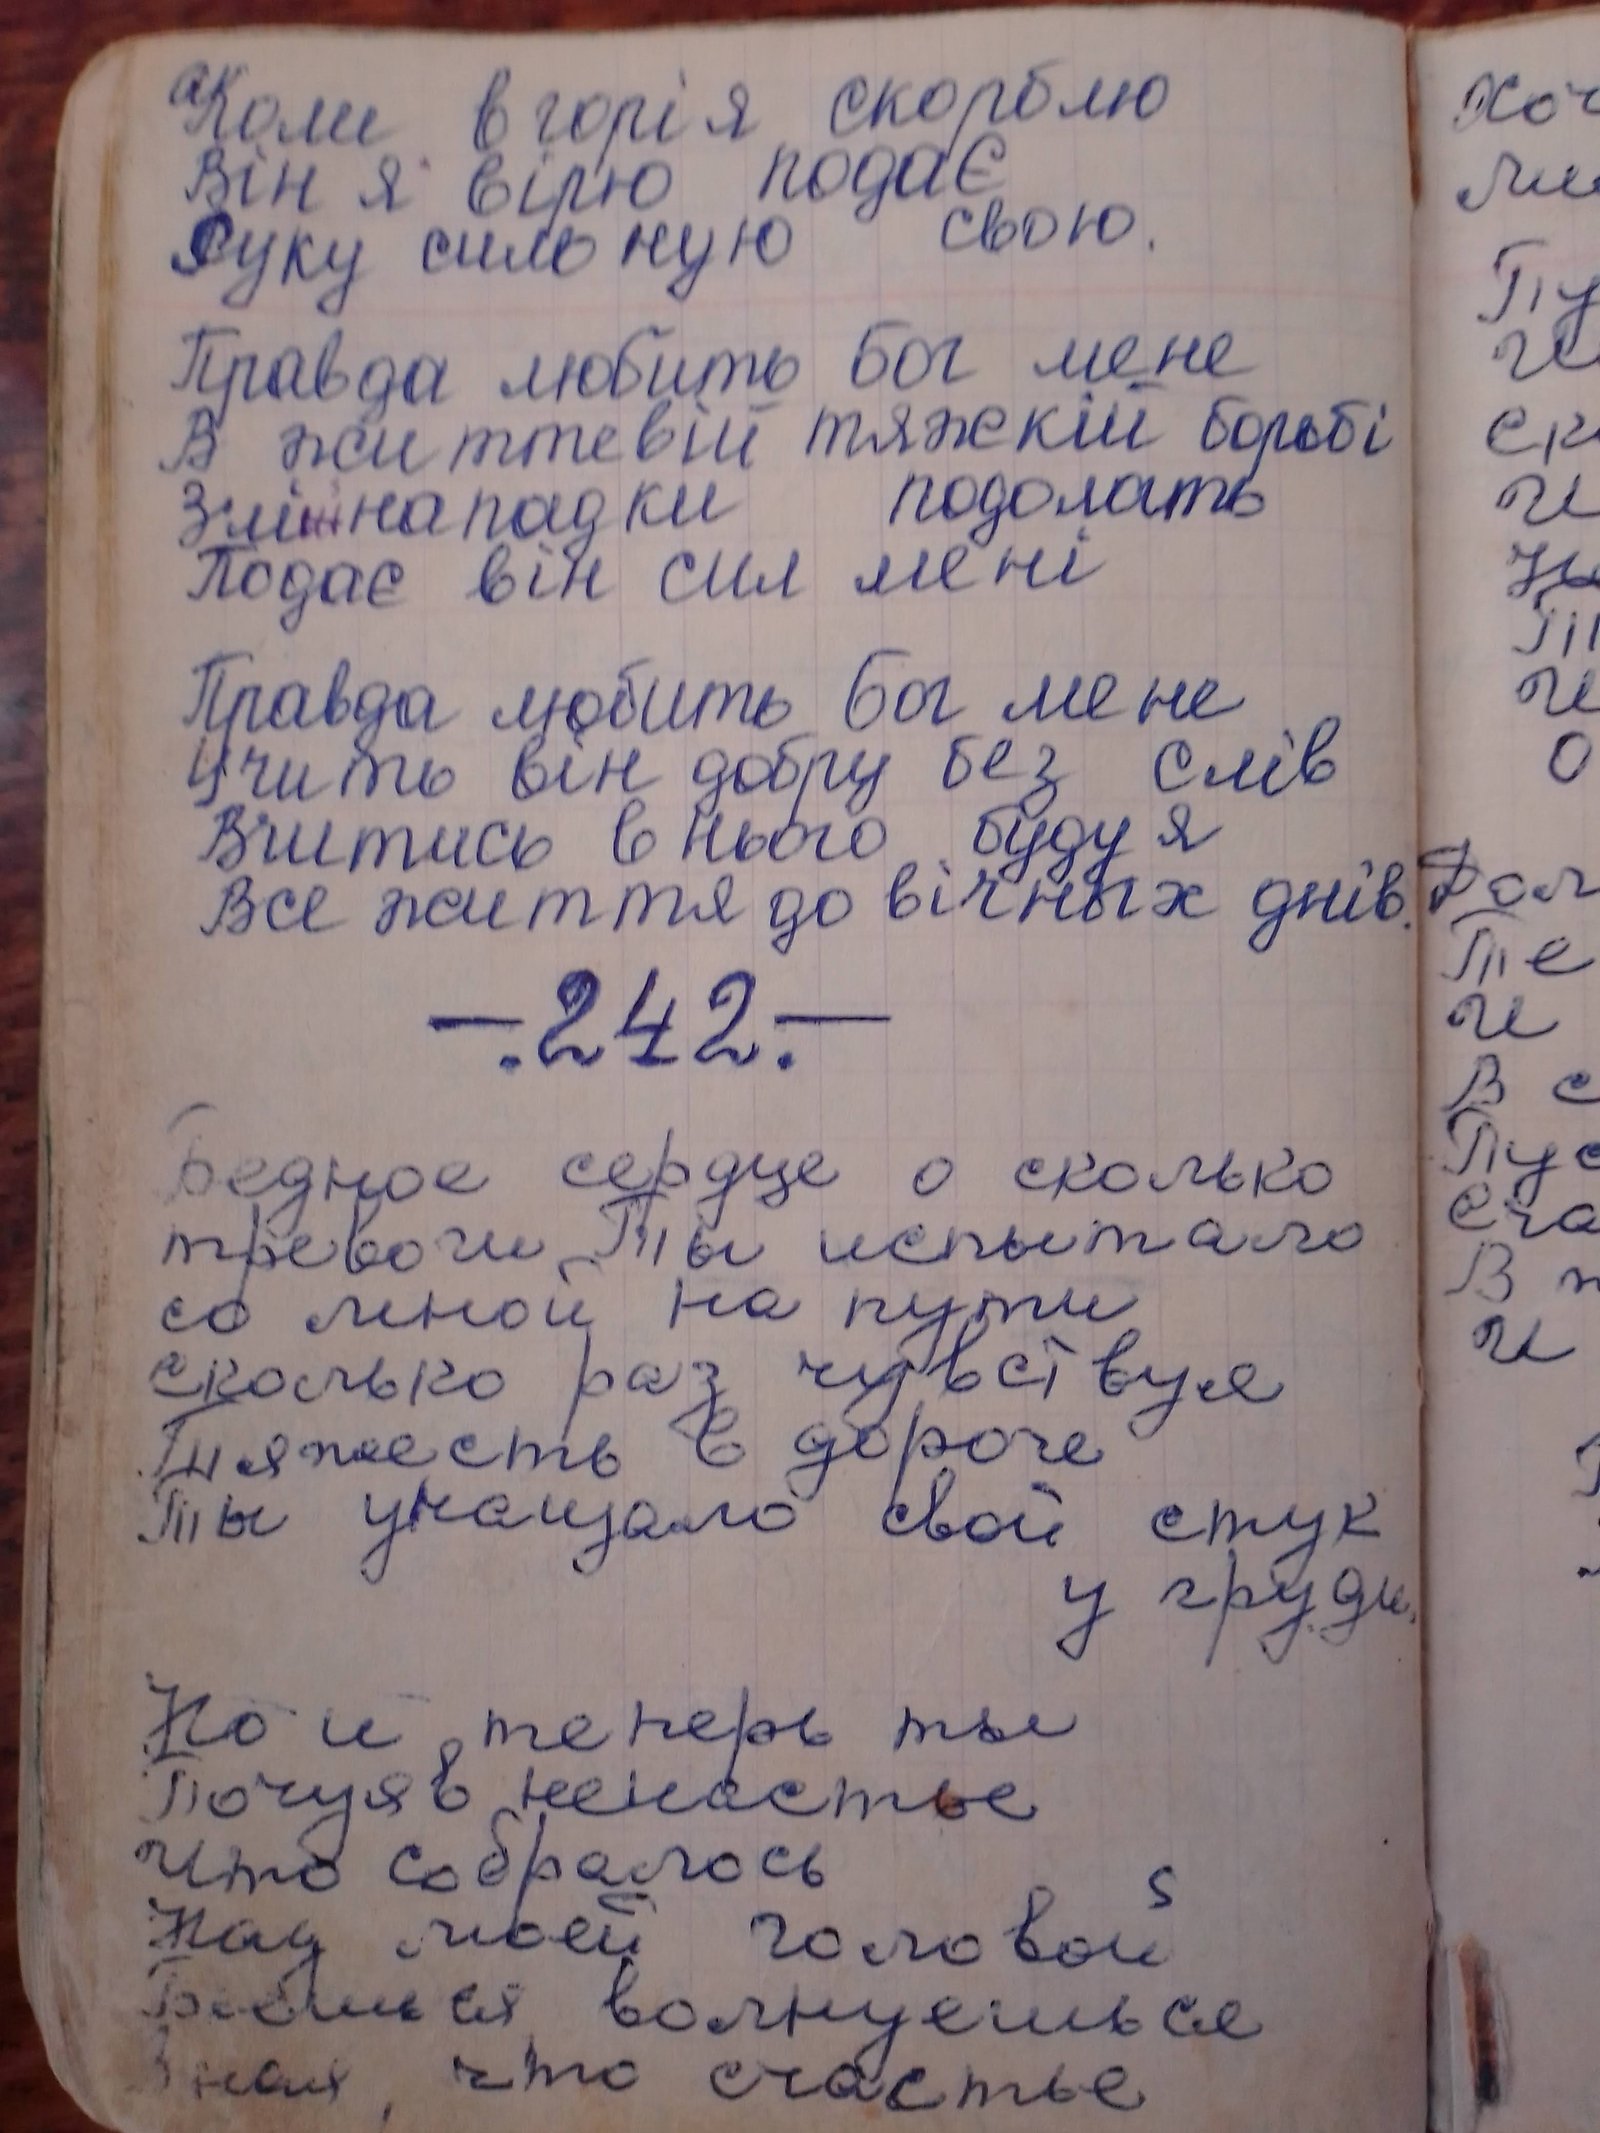 Коли в горі я скорблю
Він я вірю подає
Руку сильную свою.
Правда любить Бог мене
В життевій тяжскій борьбі
Злі нападки подолать
Подає він сил мені
Правда любить Бог мене
Учить він добру без слів
Вчитись в нього буду я
Все життя до вічных днів.
—.242.—
Бедное сердце о сколько
тревоги Ты испытало
со мной на пути
сколько раз чувствуя
Тяжесть в дороге
Ты учащало свой стук
у груди.
Но и теперь ты
Почуяв ненастье
Что собралось
Над моей головой
Бьешься волнуешься
Зная, что счастье
Хоч
Пу
И
И
И
О
Те
И
В с
Пус
Сча
В
И